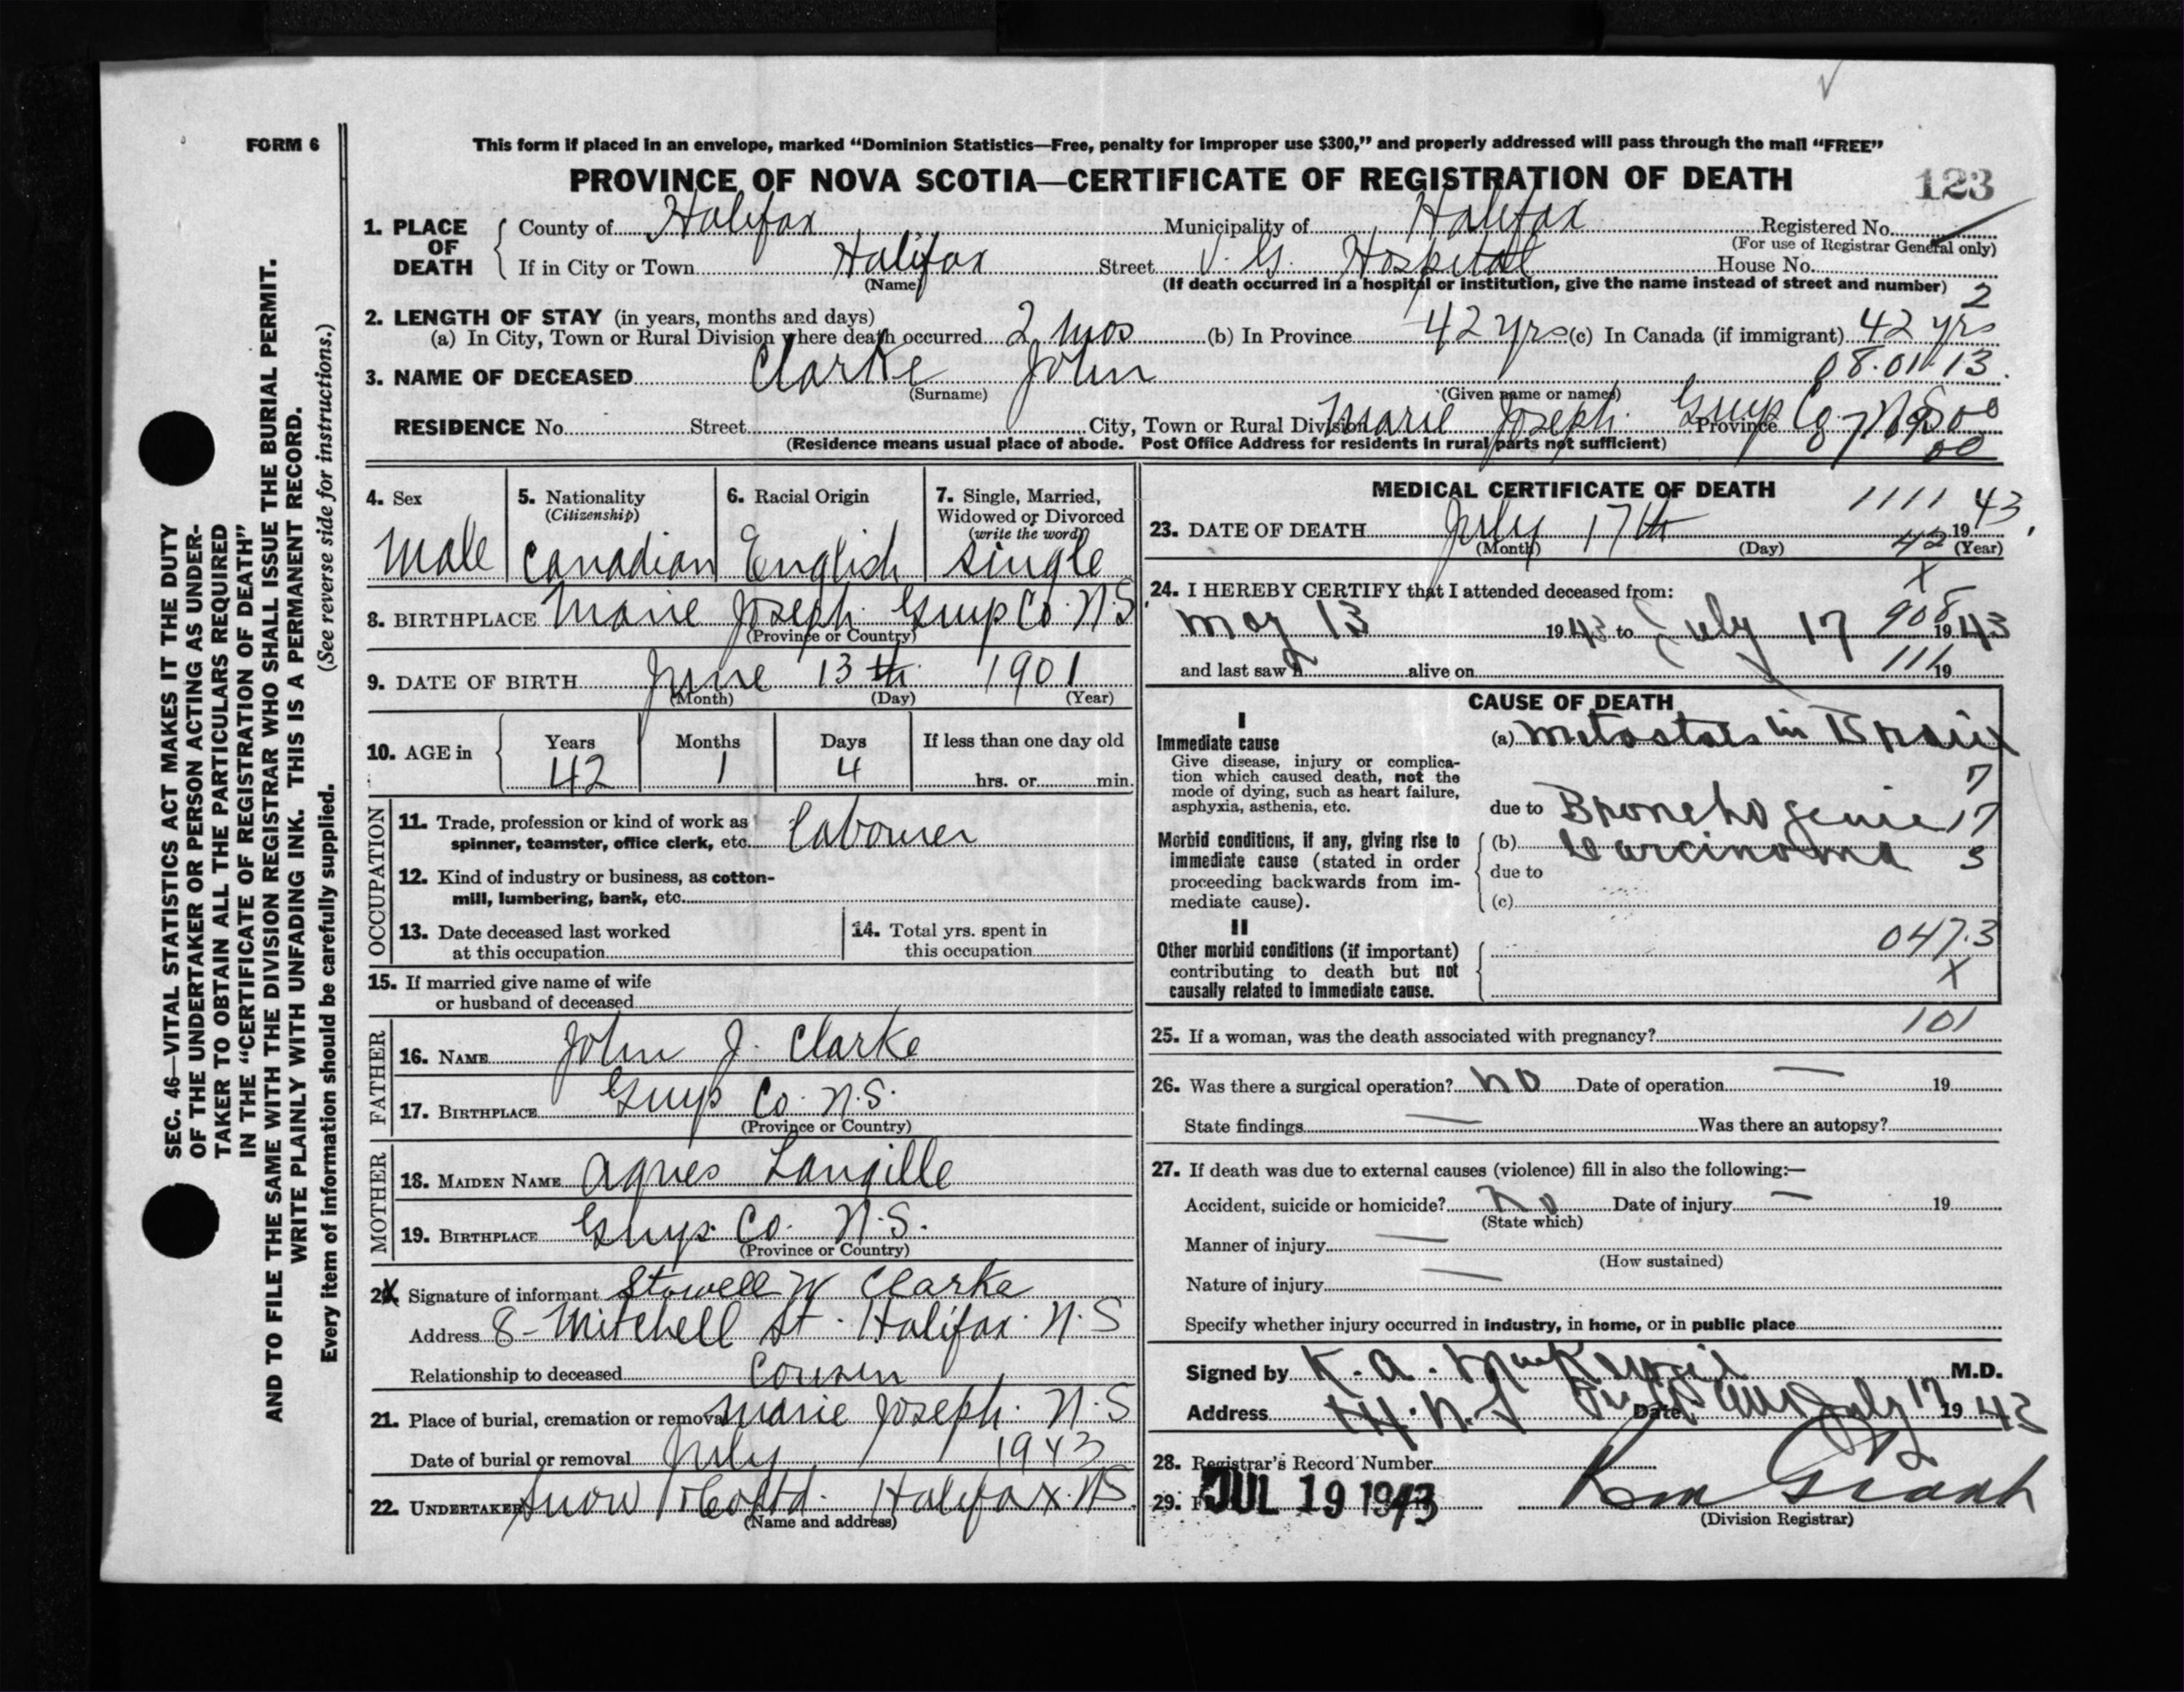 FORM 6
This form if placed in an envelope, marked “Dominion Statistics—Free, penalty for improper use $300,” and properly addressed will pass through the mail “FREE”
PROVINCE OF NOVA SCOTIA—CERTIFICATE OF REGISTRATION OF DEATH
123
1. PLACE OF DEATH
County of Halifax Municipality of Halifax Registered No.
(For use of Registrar General only)
If in City or Town Halifax Street V. G. Hospital House No.
(Name) (If death occurred in a hospital or institution, give the name instead of street and number)
2
2. LENGTH OF STAY (in years, months and days)
(a) In City, Town or Rural Division where death occurred 2 mos (b) In Province 42 yrs (c) In Canada (if immigrant) 42 yrs
08.01.13
3. NAME OF DECEASED Clarke John
(Surname) (Given name or names)
RESIDENCE No. Street City, Town or Rural Division Marie Joseph. Guys Co Province
(Residence means usual place of abode. Post Office Address for residents in rural parts not sufficient)
00
4. Sex
Male
5. Nationality
(Citizenship)
Canadian
6. Racial Origin
English
7. Single, Married,
Widowed or Divorced
(write the word)
Single
8. BIRTHPLACE Marie Joseph. Guys Co. N.S
(Province or Country)
9. DATE OF BIRTH June 13th 1901
(Month) (Day) (Year)
10. AGE in
Years Months Days If less than one day old
42 1 4 hrs. or min.
OCCUPATION
11. Trade, profession or kind of work as
spinner, teamster, office clerk, etc. Labourer
12. Kind of industry or business, as cotton-
mill, lumbering, bank, etc.
13. Date deceased last worked
at this occupation
14. Total yrs. spent in
this occupation
15. If married give name of wife
or husband of deceased
FATHER
16. NAME John J. Clarke
17. BIRTHPLACE Guys Co. N.S.
(Province or Country)
MOTHER
18. MAIDEN NAME Agnes Langille
19. BIRTHPLACE Guys. Co. N.S.
(Province or Country)
Signature of informant Stowell W Clarke
Address 8- Mitchell St. Halifax. N.S
Relationship to deceased Cousin
21. Place of burial, cremation or removal Marie Joseph. N.S
Date of burial or removal July 1943
22. UNDERTAKER Snow & Co Ltd. Halifax. NS
(Name and address)
MEDICAL CERTIFICATE OF DEATH
1111
23. DATE OF DEATH July 17th 19 43
(Month) (Day) (Year)
42
X
24. I HEREBY CERTIFY that I attended deceased from:
May 13 1943 to July 17 1943
908
and last saw h alive on 19
111
CAUSE OF DEATH
I
Immediate cause
Give disease, injury or complica-
tion which caused death, not the
mode of dying, such as heart failure,
asphyxia, asthenia, etc.
(a) Metastasis in Brain
7
due to Bronchogenic 17
Morbid conditions, if any, giving rise to
immediate cause (stated in order
proceeding backwards from im-
mediate cause).
(b) Carcinoma 3
due to
(c)
II
Other morbid conditions (if important)
contributing to death but not
causally related to immediate cause.
047.3
X
25. If a woman, was the death associated with pregnancy? 101
26. Was there a surgical operation? No Date of operation — 19
State findings — Was there an autopsy?
27. If death was due to external causes (violence) fill in also the following:—
Accident, suicide or homicide? No Date of injury — 19
(State which)
Manner of injury —
(How sustained)
Nature of injury —
Specify whether injury occurred in industry, in home, or in public place
Signed by K. A. MacKenzie M.D.
Address Date July 17 1943
28. Registrar's Record Number
29. JUL 19 1943
(Division Registrar)
SEC. 46—VITAL STATISTICS ACT MAKES IT THE DUTY
OF THE UNDERTAKER OR PERSON ACTING AS UNDER-
TAKER TO OBTAIN ALL THE PARTICULARS REQUIRED
IN THE “CERTIFICATE OF REGISTRATION OF DEATH”
AND TO FILE THE SAME WITH THE DIVISION REGISTRAR WHO SHALL ISSUE THE BURIAL PERMIT.
WRITE PLAINLY WITH UNFADING INK. THIS IS A PERMANENT RECORD.
Every item of information should be carefully supplied. (See reverse side for instructions.)